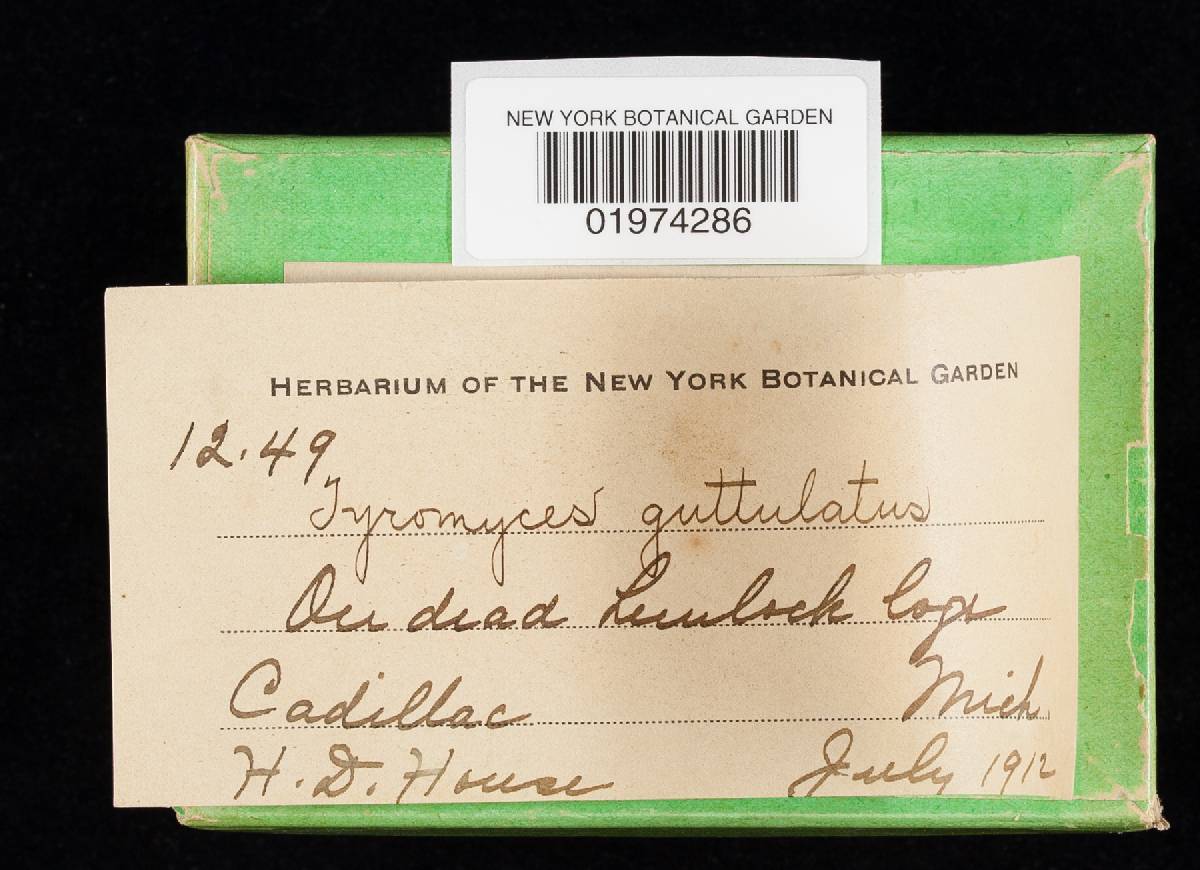 NEW YORK BOTANICAL GARDEN
01974286
HERBARIUM OF THE NEW YORK BOTANICAL GARDEN
12.49
Tyromyces guttulatus
On dead hemlock logs
Cadillac Mich.
H. D. House July 1912